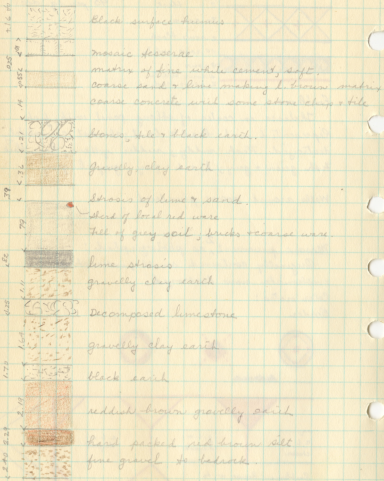 Black surface humus
mosaic tesserae
matrix of fine white cement, soft.
coarse sand & lime making l. brown matrix
coarse concrete with some stone chip & tile
Stones, tile & black earth.
gravelly, clay earth
Strosis of lime & sand.
Sherd of local red ware
Fill of grey soil, bricks & coarse ware.
lime strosis
gravelly clay earth
Decomposed limestone
gravelly clay earth
black earth
reddish brown gravelly earth
hard packed red brown silt
fine gravel to bedrock.